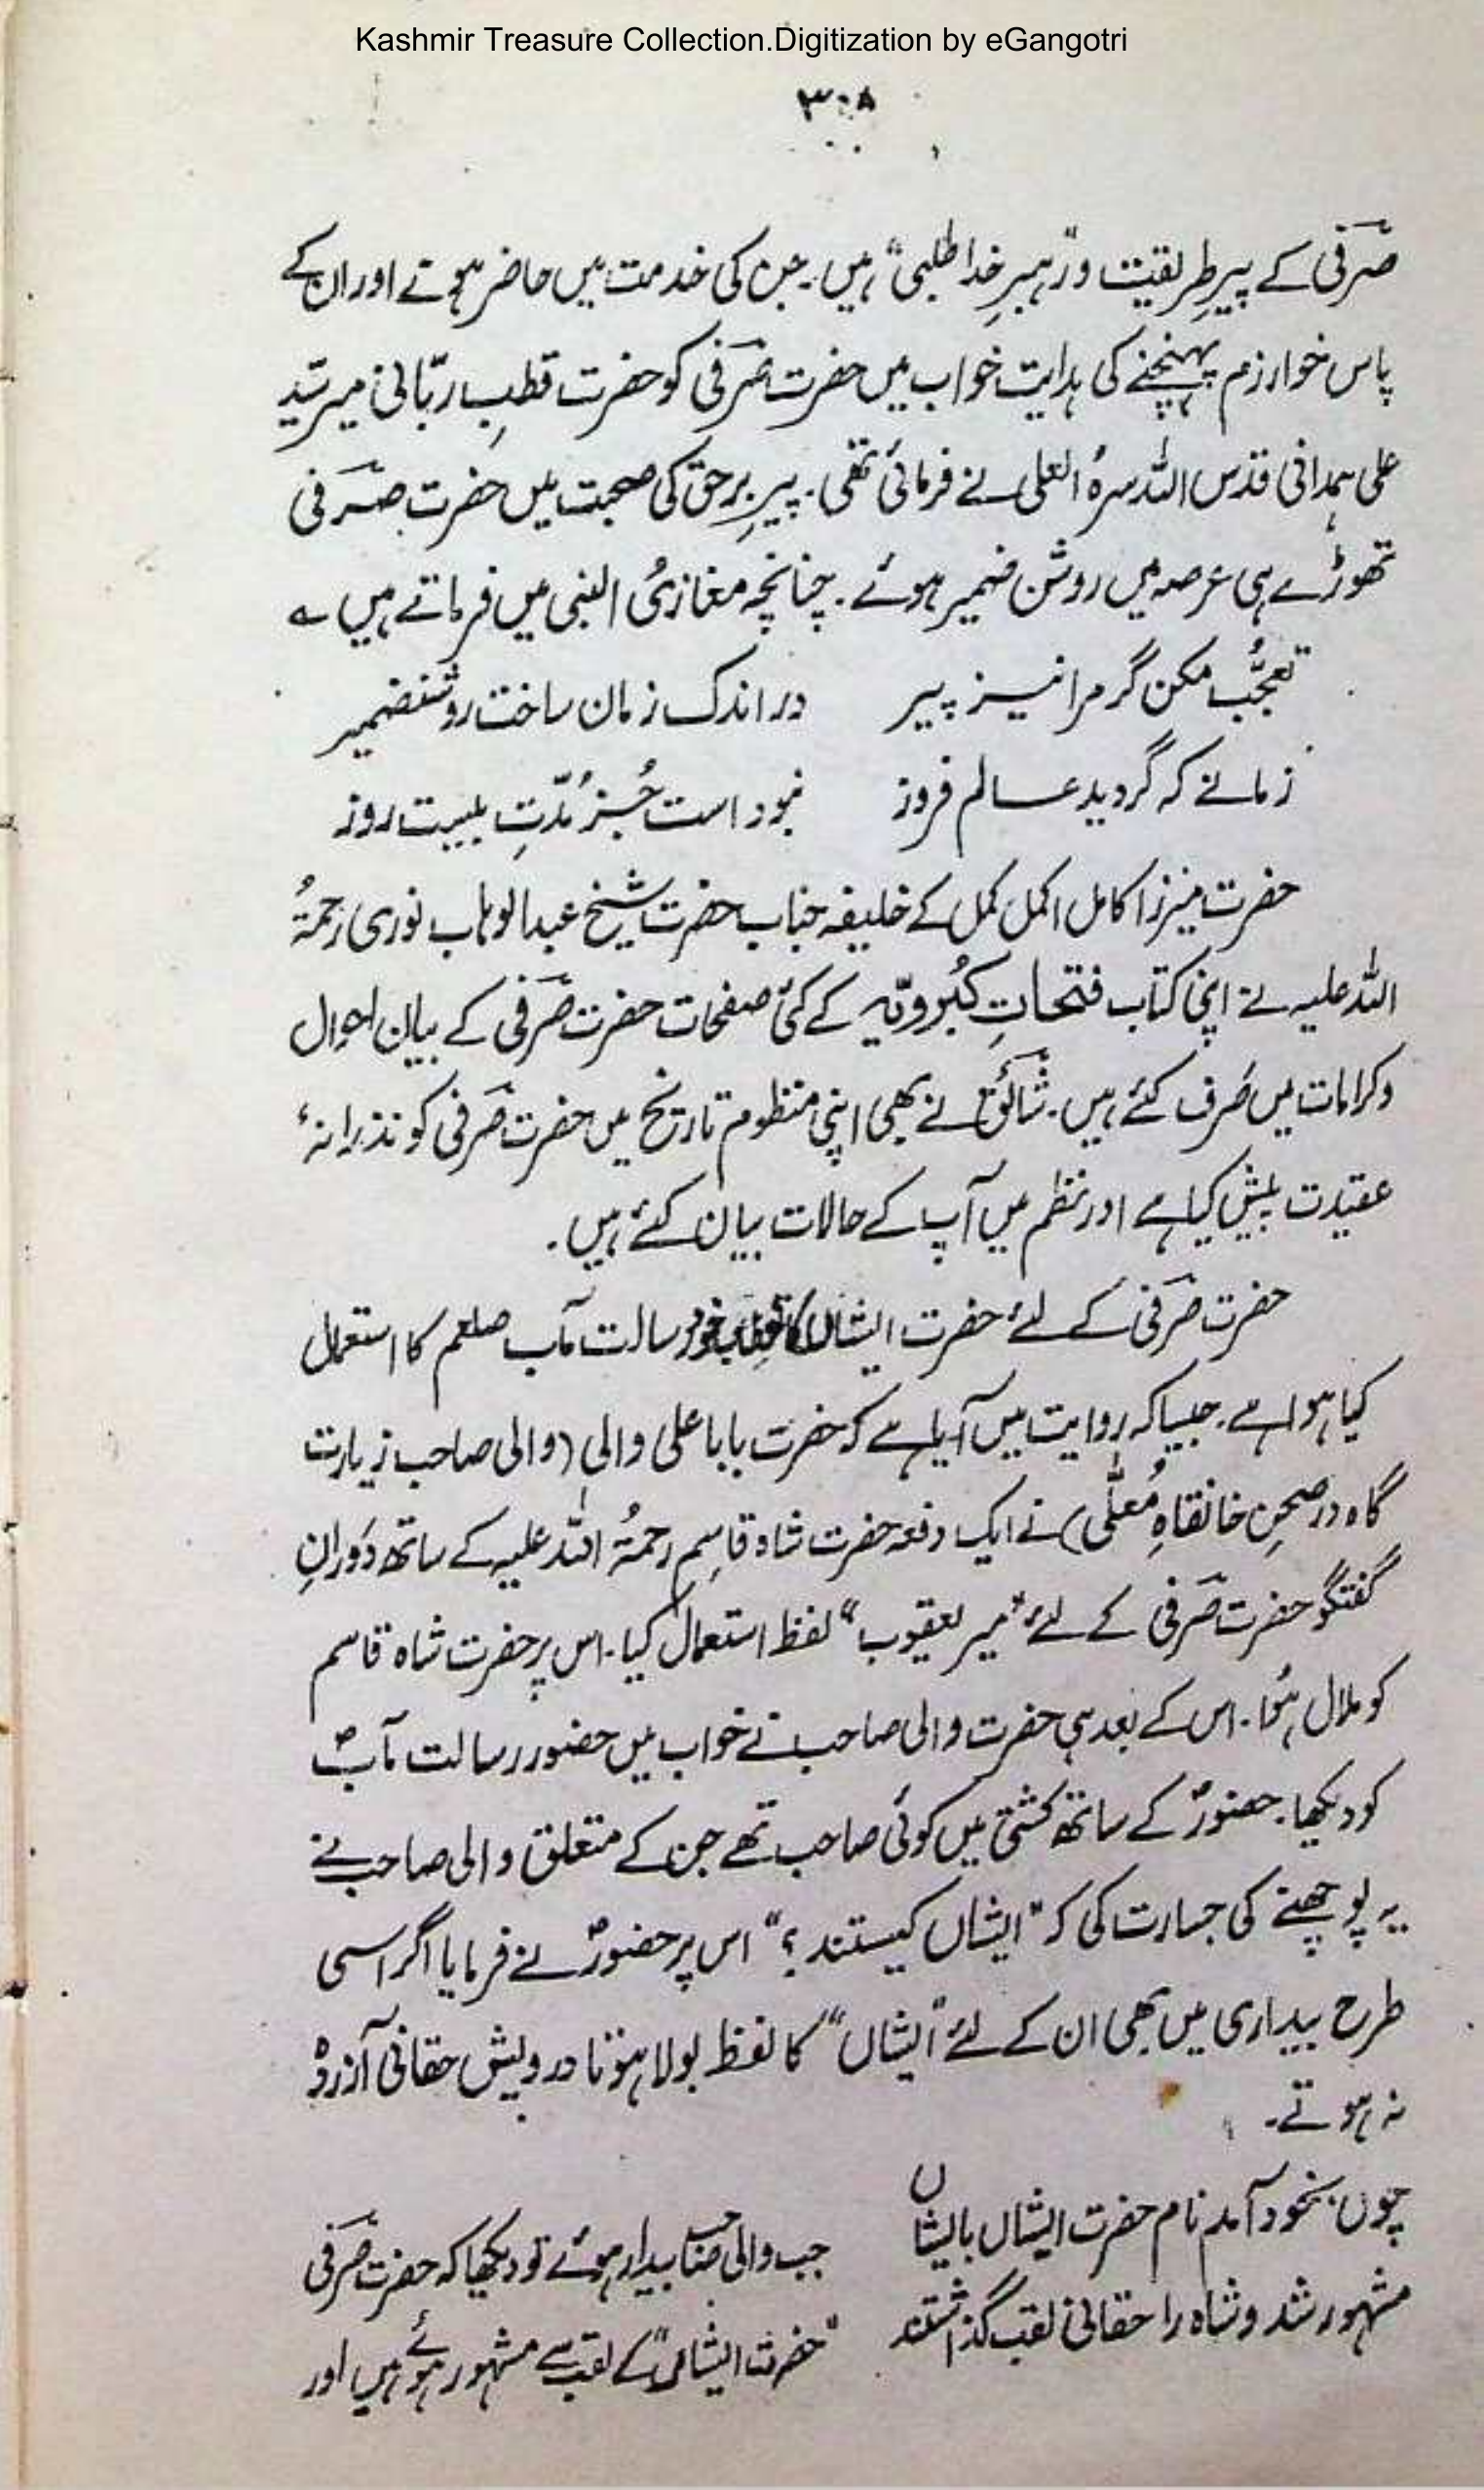 Kashmir Treasure Collection.Digitization by eGangotri
۳۰۸
صرفی کے پیرِ طریقیت و "رہبرِ خدا طلبی" ہیں۔ جن کی خدمت میں حاضر ہوتے اور ان کے
پاس خوارزم پہنچنے کی ہدایت خواب میں حضرت صرفی کو حضرت قطبِ ربّانی میر سّید
علی ہمدانی قدس اللہ سرہُ العلی نے فرمائی تھی۔ پیرِ برحق کی صحبت میں حضرت صرفی
تھوڑے ہی عرصہ میں روشن ضمیر ہوئے۔ چنانچہ مغازیُ النبی میں فرماتے ہیں ؎
تعجُّب مکن گر مرا نیز پیر در اندک زمان ساخت روشنضمیر
زمانے کہ گردید عالم فروز نبود است جُز مُدّتِ بیست روز
حضرت میرزا کامل اکمل کمل کے خلیفہ جناب حضرت شیخ عبدالوہاب نوری رحمۃُ
اللہ علیہ نے اپنی کتاب فتحاتِ کُبرویّہ کے کئی صفحات حضرت صرفی کے بیان احوال
و کرامات میں صَرف کئے ہیں۔ شائق نے بھی اپنی منظوم تاریخ میں حضرت صرفی کو نذرانۂ
عقیدت پیش کیا ہے اور نظم میں آپ کے حالات بیان کئے ہیں۔
حضرت صرفی کے لئے حضرت ایشاں کا خود رسالت مآب صلعم کا استعمال
کیا ہوا ہے۔ جیساکہ روایت میں آیا ہے کہ حضرت بابا علی والی (والی صاحب زیارت
گاہ در صحنِ خانقاہِ مُعلّٰی) نے ایک دفعہ حضرت شاہ قاسم رحمۃُ اللہ علیہ کے ساتھ دَورانِ
گفتگو حضرت صرفی کے لئے "میر یعقوب" لفظ استعمال کیا۔ اس پر حضرت شاہ قاسم
کو ملال ہُوا۔ اس کے بعد ہی حضرت والی صاحب نے خواب میں حضور رسالت مآبؐ
کو دیکھا۔ حضورؐ کے ساتھ کشتی میں کوئی صاحب تھے جن کے متعلق والی صاحب نے
یہ پوچھنے کی جسارت کی کہ "ایشاں کیستند؟" اس پر حضورؐ نے فرمایا اگر اسی
طرح بیداری میں بھی ان کے لئے "ایشاں" کا لفظ بولا ہوتا درویش حقانی آزردہ
نہ ہوتے۔
چوں بخود آمد نام حضرت ایشاں بایشاں جب والی صاحب بیدار ہوئے تو دیکھا کہ حضرت صرفی
مشہور شد و شاہ را حقانی لقب گذاشتند "حضرت ایشاں" کے لقب سے مشہور ہوئے ہیں اور